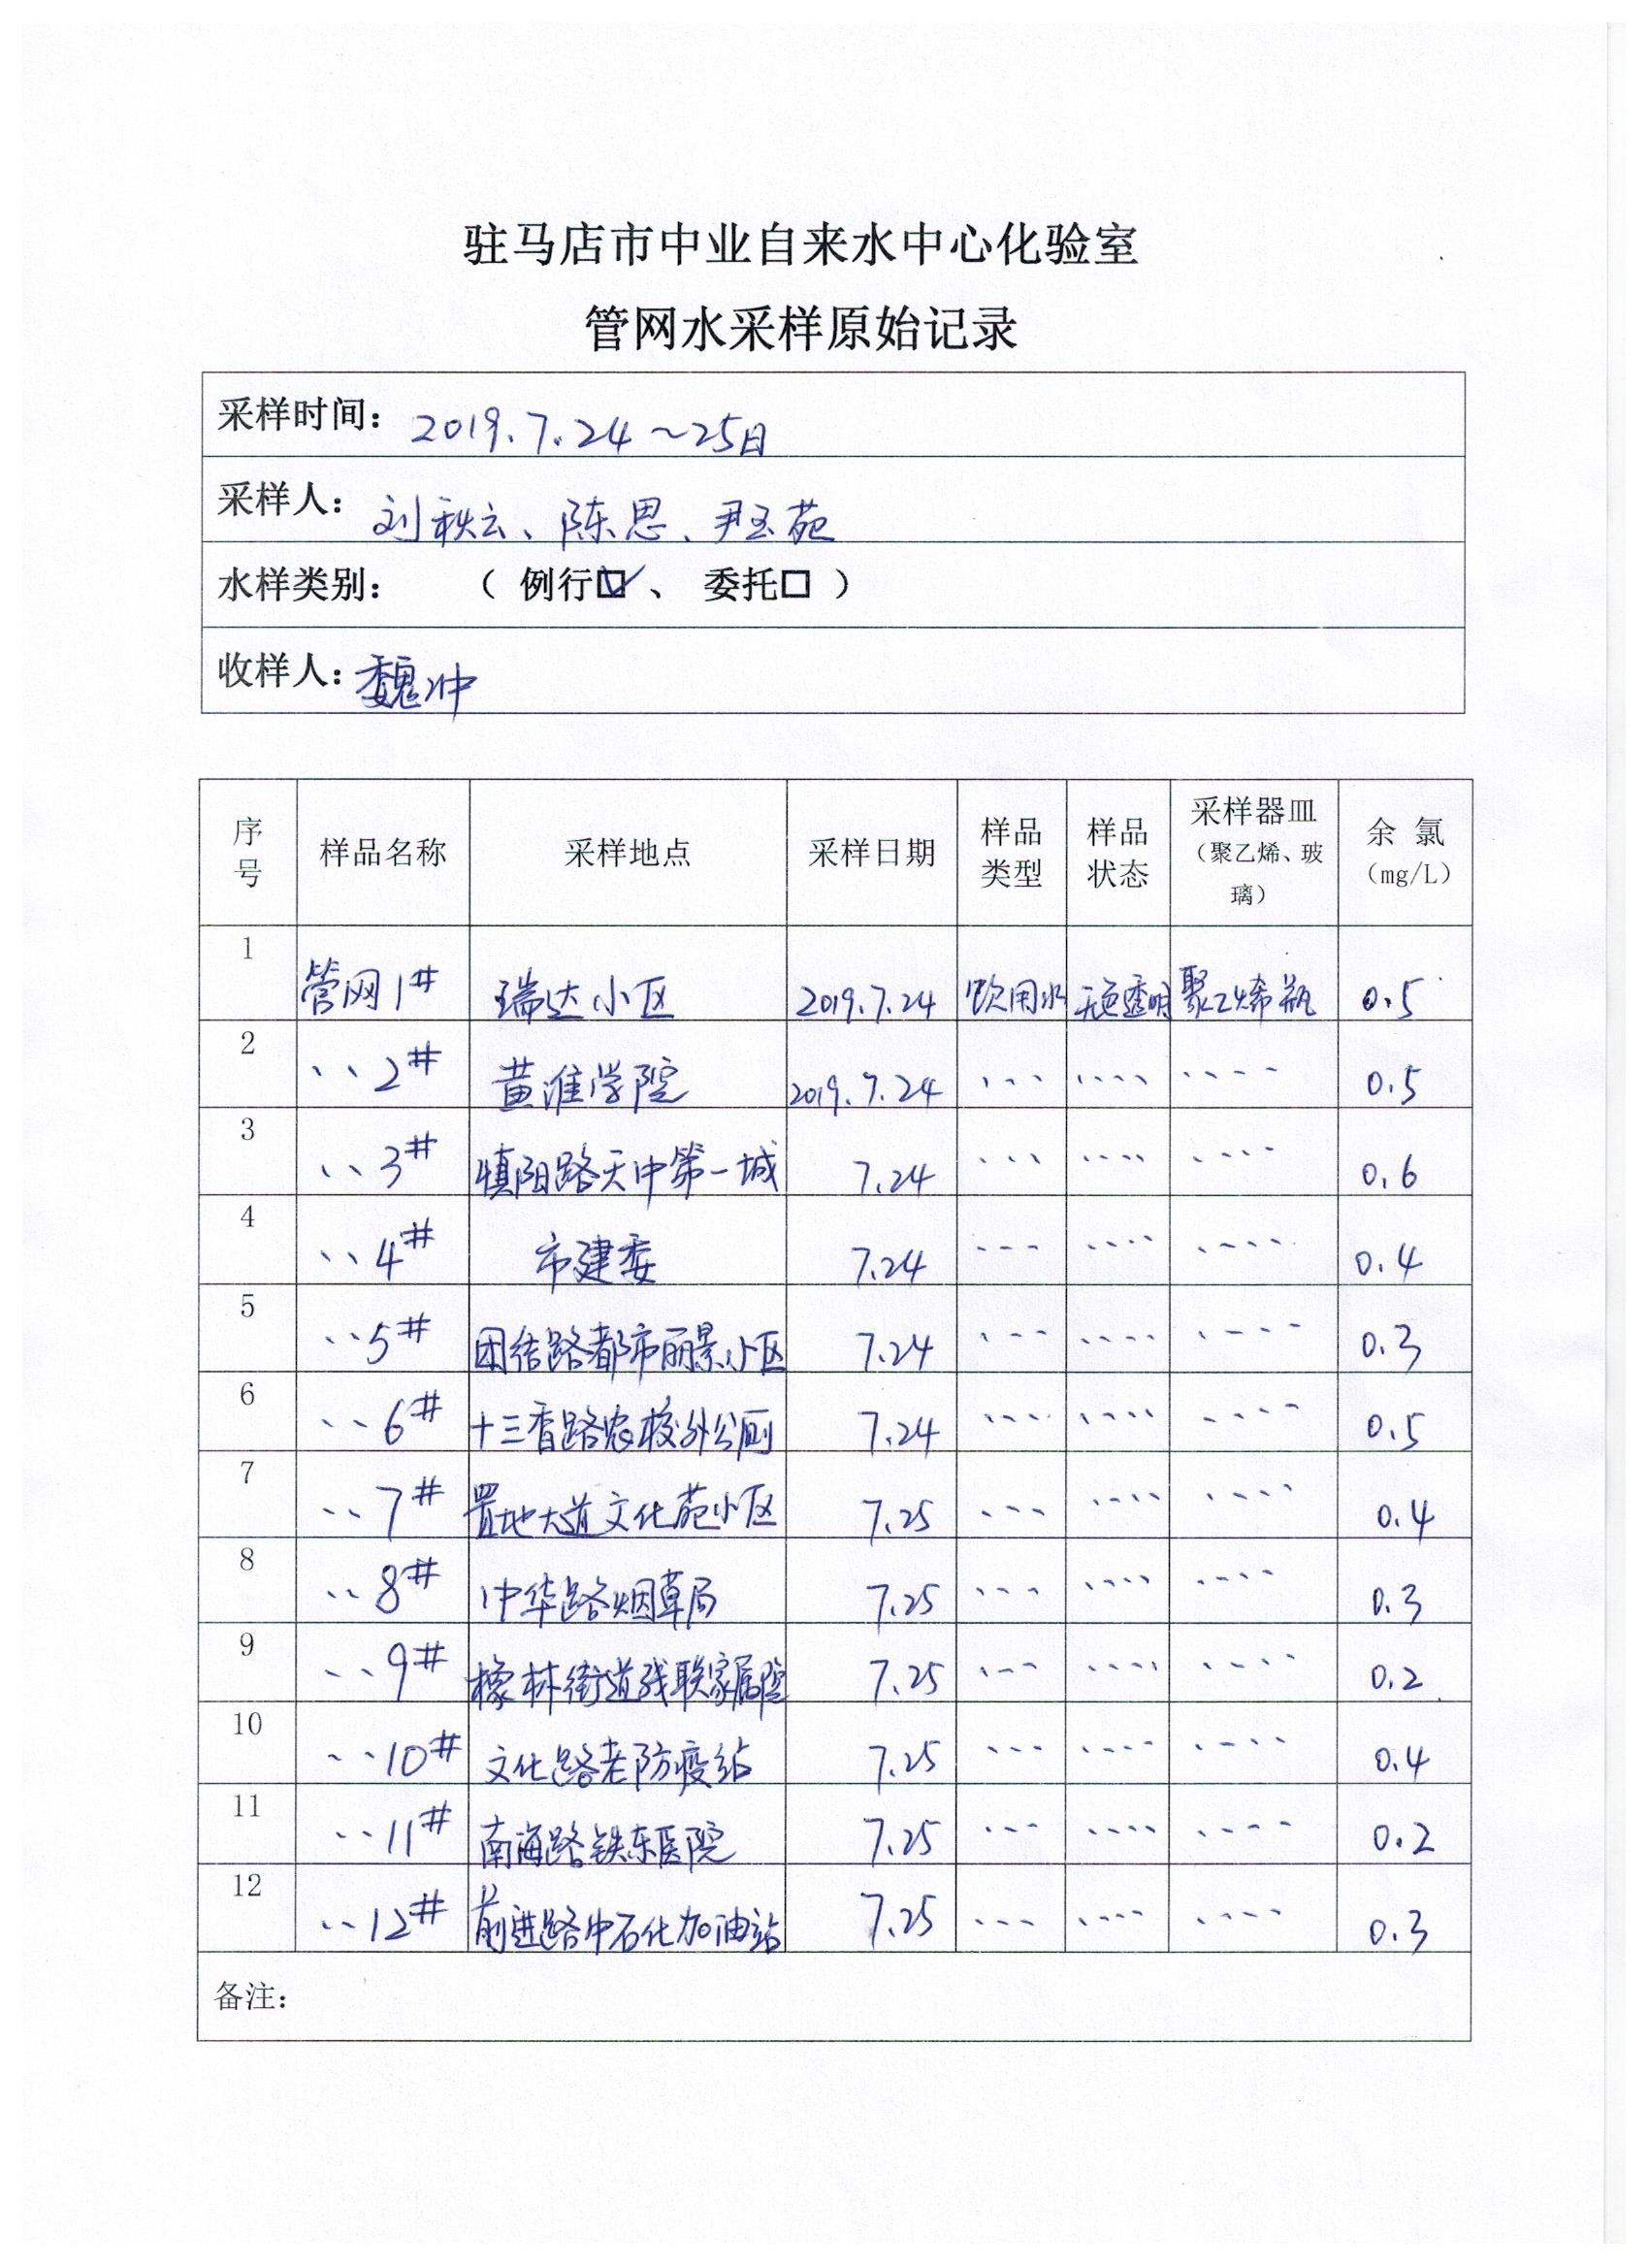 驻马店市中业自来水中心化验室
管网水采样原始记录
采样时间: 2019.7.24~25日
采样人: 刘秋云、陈思、尹玉苑
水样类别: ( 例行☑、 委托□ )
收样人: 魏冲
序号 样品名称 采样地点 采样日期 样品类型 样品状态 采样器皿(聚乙烯、玻璃) 余氯(mg/L)
1 管网1# 瑞达小区 2019.7.24 饮用水 无色透明 聚乙烯瓶 0.5
2 、、2# 黄淮学院 2019.7.24 、、、 、、、、 、、、、 0.5
3 、、3# 慎阳路天中第一城 7.24 、、、 、、、、 、、、、 0.6
4 、、4# 市建委 7.24 、、、 、、、、 、、、、 0.4
5 、、5# 团结路都市丽景小区 7.24 、、、 、、、、 、、、、 0.3
6 、、6# 十三香路农校外公厕 7.24 、、、、 、、、、 、、、、 0.5
7 、、7# 置地大道文化苑小区 7.25 、、、 、、、、 、、、、 0.4
8 、、8# 中华路烟草局 7.25 、、、 、、、、 、、、、 0.3
9 、、9# 橡林街道残联家属院 7.25 、、、 、、、、 、、、、 0.2
10 、、10# 文化路老防疫站 7.25 、、、 、、、、 、、、、 0.4
11 、、11# 南海路铁东医院 7.25 、、、 、、、、 、、、、 0.2
12 、、12# 前进路中石化加油站 7.25 、、、 、、、、 、、、、 0.3
备注: